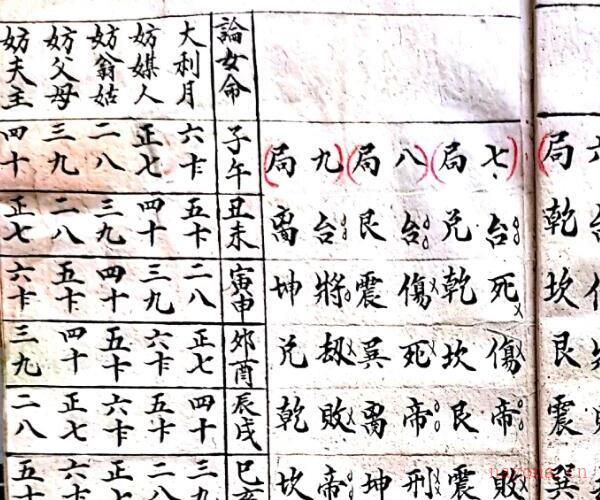 局乾坎艮震巽
七台死傷帝敗
局兌乾坎艮震
八台傷死帝刑
局艮震巽离坤
九台將劫敗帝
局离坤兌乾坎
論女命 子午 丑未 寅申 卯酉 辰戌 巳亥
大利月 六卡 五卡 二八 正七 四十 三九
妨媒人 正七 四十 三九 六卡 五卡 二八
妨翁姑 二八 三九 四十 五卡 六卡 正七
妨父母 三九 二八 五卡 四十 正七 六卡
妨夫主 四十 正七 六卡 三九 二八 五卡